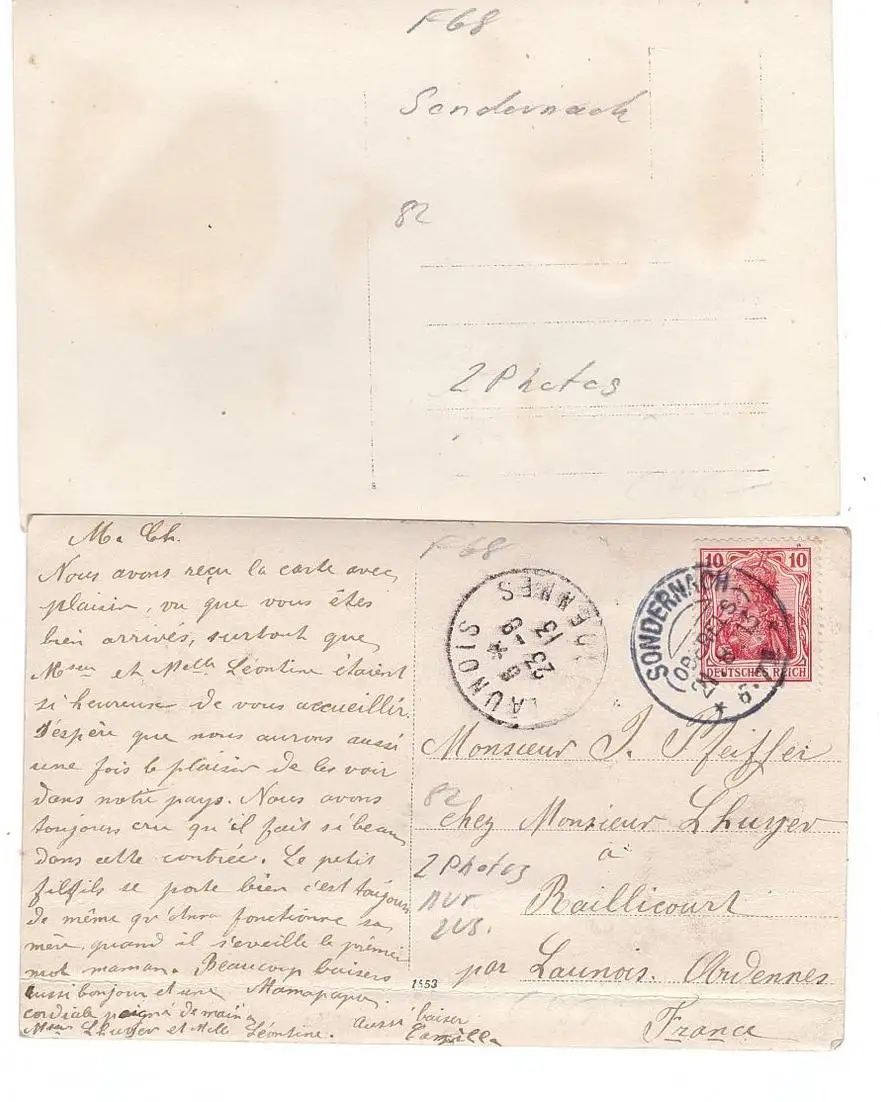 F68
Sondernach
82
2 Photos
M. Ch.
Nous avons reçu la carte avec
plaisir, vu que vous êtes
bien arrivés, surtout que
Msieu et Melle Léontine étaient
si heureuse de vous accueillir.
J'espère que nous aurons aussi
une fois le plaisir de les voir
dans notre pays. Nous avons
toujours cru qu'il fait si beau
dans cette contrée. Le petit
filfils se porte bien c'est toujours
de même qu'Anna fonctionne sa
mère, quand il s'eveille le prémier
mot maman. Beaucoup baisers
aussi bonjour et une Mamapapa.
cordiale poigné de main a
Msieu Lhuyer et Melle Léontine.
aussi baiser
Camille
F68
LAUNOIS
23 - 8
13
SONDERNACH
(OBERELS.)
21 8 13
10 10
DEUTSCHES REICH
Monsieur J. Pfeiffer
82
chez Monsieur Lhuyer
à
2 Photos
nur
zus.
Raillicourt
par Launois. Ardennes
1553
France